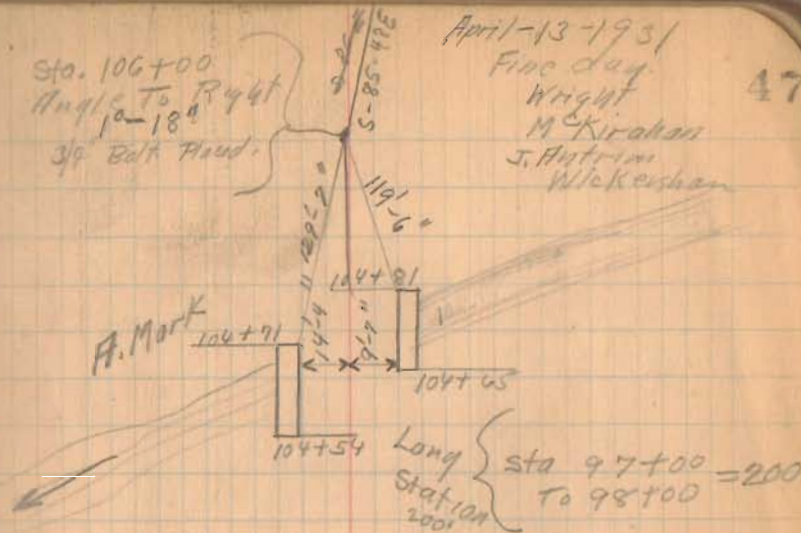 April-13-1931
Fine day.
47
Wright
McKirahan
J. Antrim
Wickersham
Sta. 106+00
Angle To Right
1°-18"
3/4 Bolt Placed.
S-85-49E
129'-7"
119'-6"
104+81
A. Mark
104+71
14'-4"
9'-7"
104+65
104+54
Long
Station
200'
Sta 97+00
To 98+00
=200